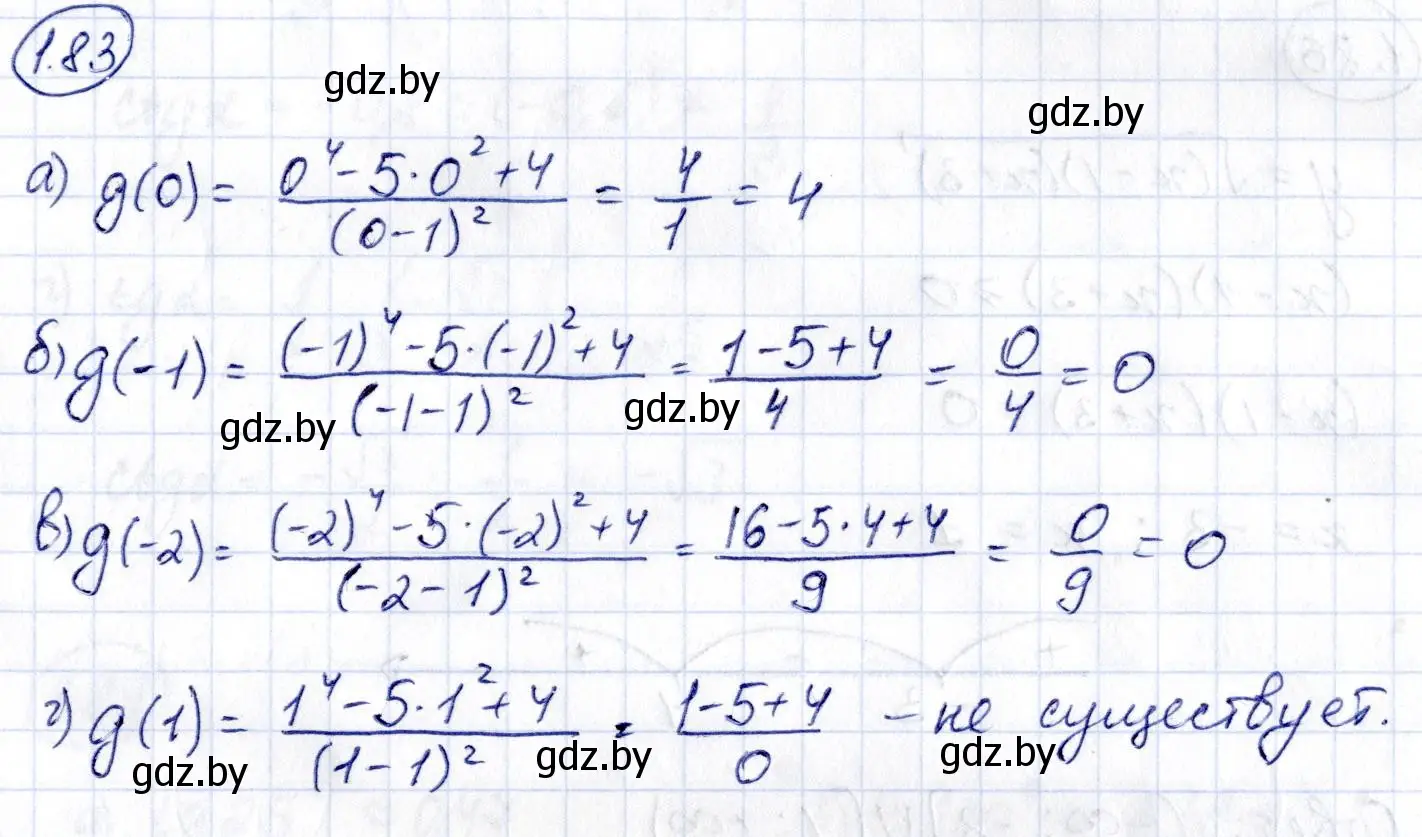 1.83
gdz.by
gdz.by
а) g(0) = (0⁴ - 5·0² + 4)/((0-1)²) = 4/1 = 4
б) g(-1) = ((-1)⁴ - 5·(-1)² + 4)/((-1-1)²) = (1-5+4)/4 = 0/4 = 0
gdz.by
gdz.by
в) g(-2) = ((-2)⁴ - 5·(-2)² + 4)/((-2-1)²) = (16-5·4+4)/9 = 0/9 = 0
г) g(1) = (1⁴ - 5·1² + 4)/((1-1)²) = (1-5+4)/0 - не существует.
gdz.by
gdz.by
gdz.by